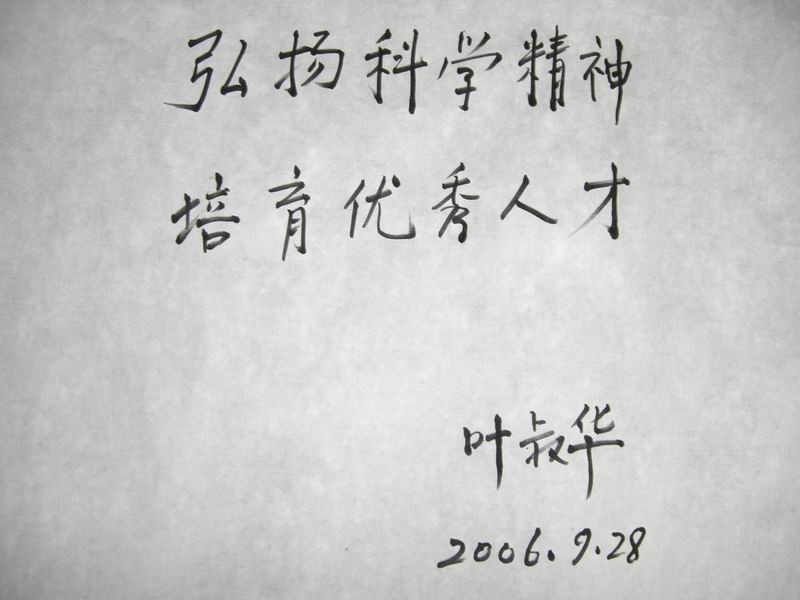 弘扬科学精神
培育优秀人才
叶叔华
2006.9.28